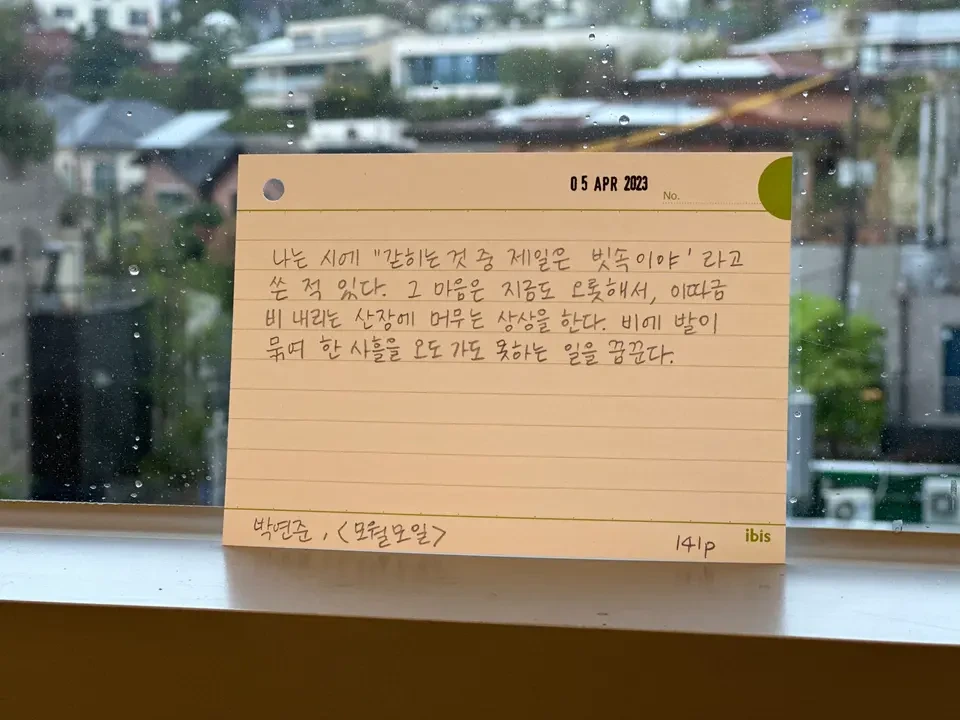 05 APR 2023
No.
나는 시에 "갇히는 것 중 제일은 빗속이야' 라고
쓴 적 있다. 그 마음은 지금도 오롯해서, 이따금
비 내리는 산장에 머무는 상상을 한다. 비에 발이
묶여 한 사흘을 오도 가도 못하는 일을 꿈꾼다.
박연준, <모월모일> 141p
ibis